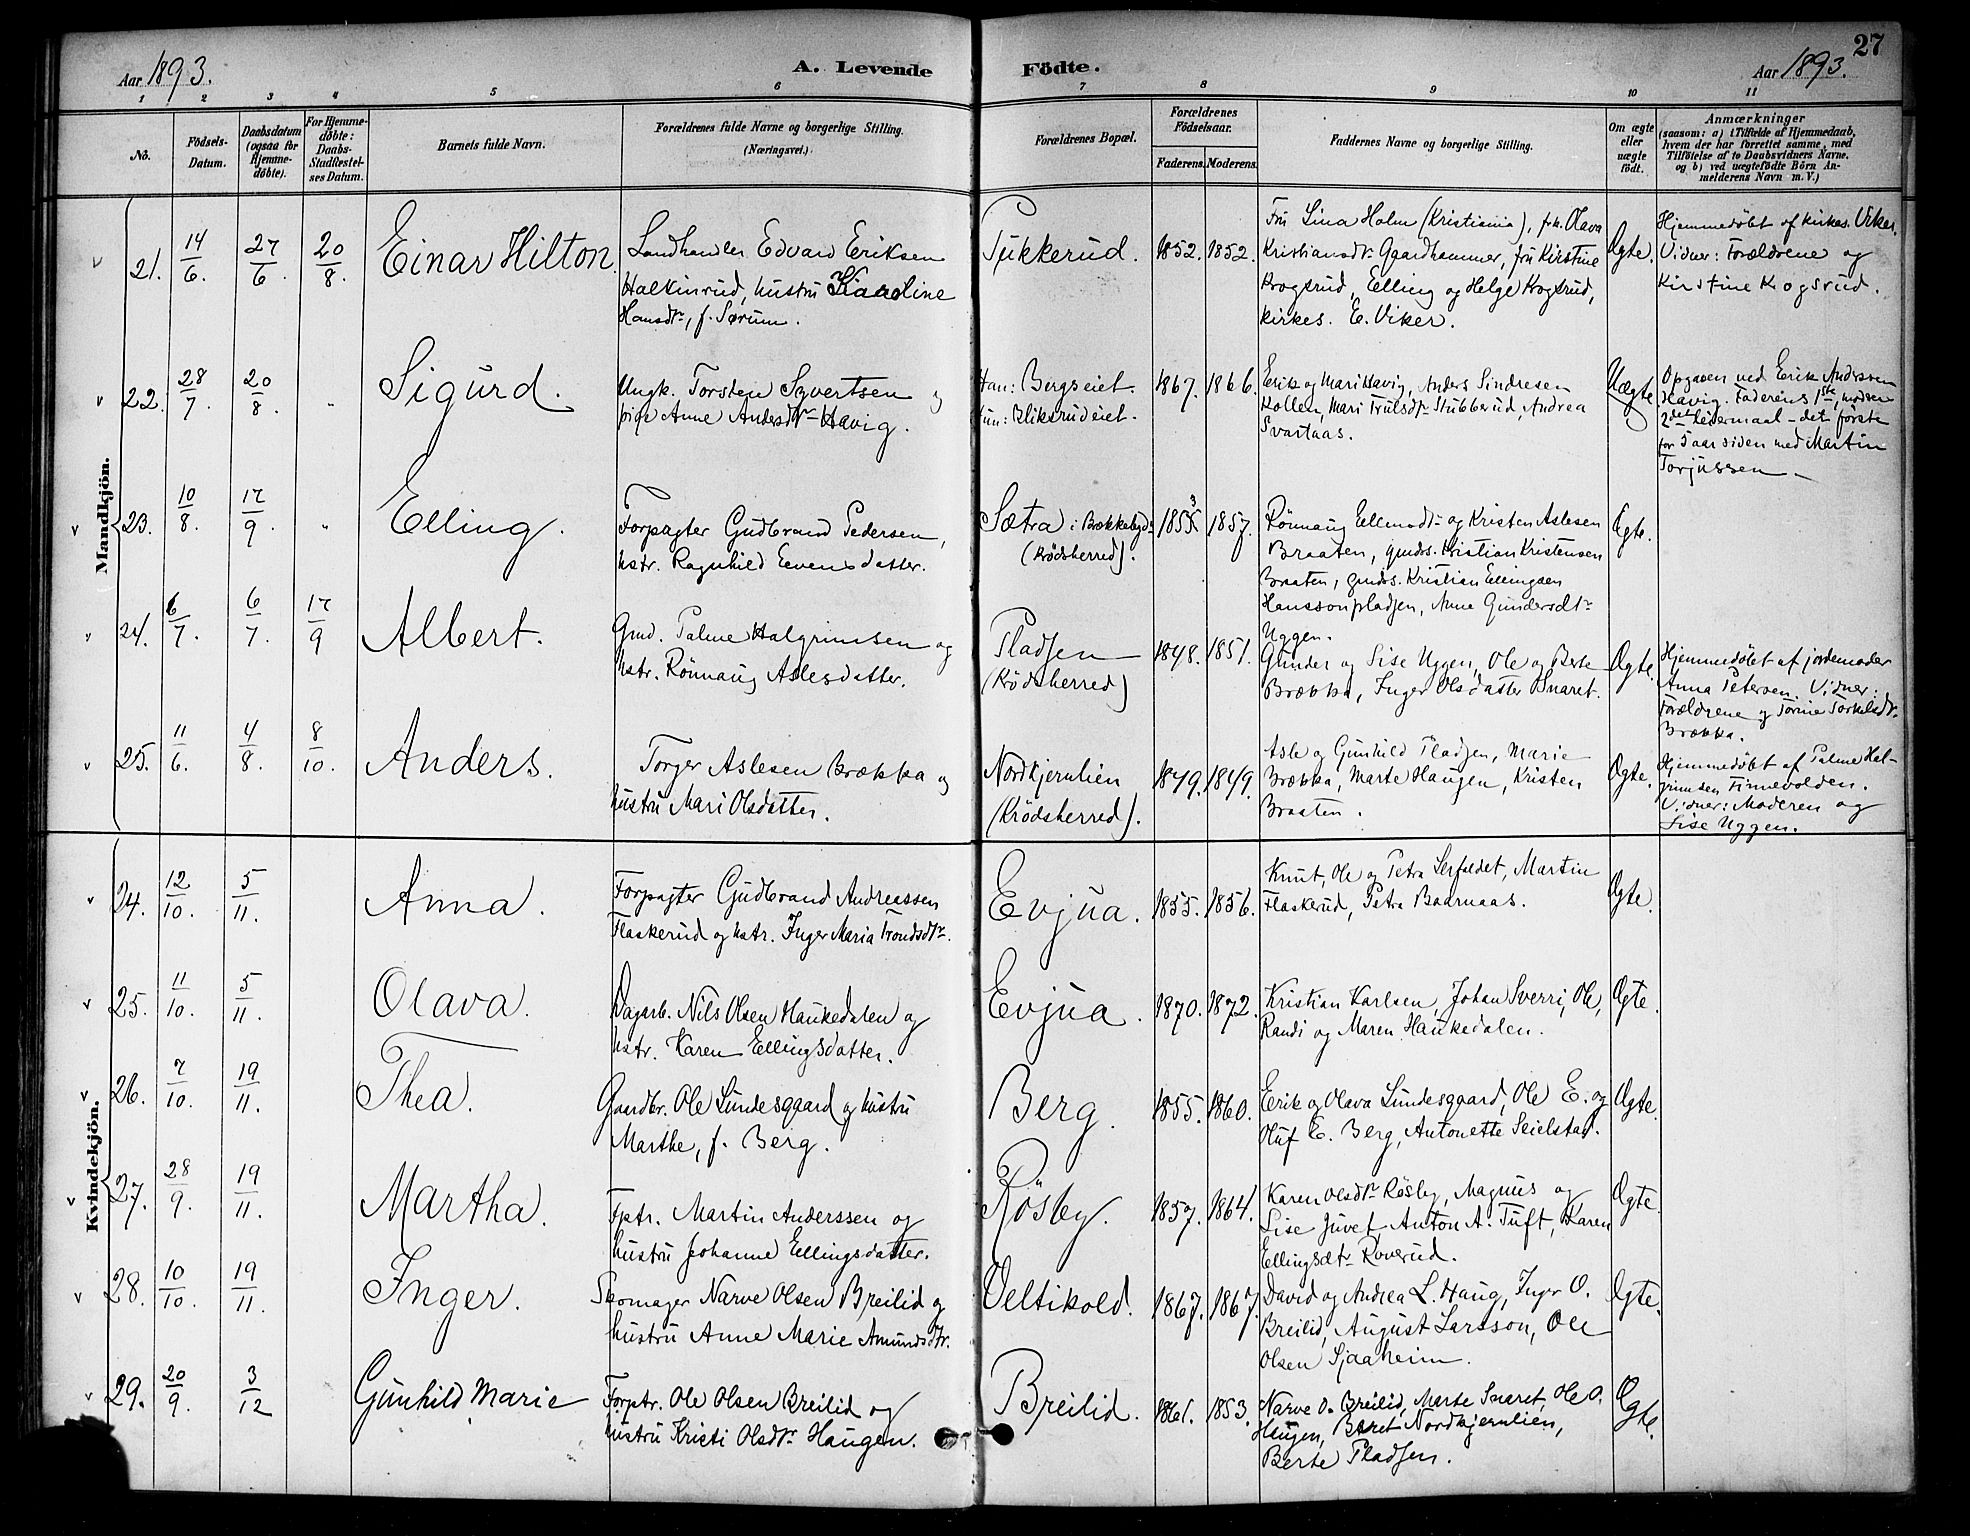 Aar 1893.
A. Levende Födte.
Aar 1893.
27
1 2 3 4 5 6 7 8 9 10 11
No.
Födsels-Datum.
Daabsdatum (ogsaa for Hjemmedøbte).
For Hjemmedøbte: Daabs-Stadfestelses Datum.
Barnets fulde Navn.
Forældrenes fulde Navne og borgerlige Stilling. (Næringsvei.)
Forældrenes Bopæl.
Forældrenes Födselsaar.
Faderens. Moderens.
Faddernes Navne og borgerlige Stilling.
Om ægte eller uægte födt.
Anmærkninger
(saasom: a) i Tilfælde af Hjemmedaab, hvem der har forrettet samme, med Tilföielse af to Daabsvidners Navne, og b) ved uægtefödte Börn Anmelderens Navn m. V.)
Mandkjön.
v 21. 14/6. 27/6. 20/8. Einar Hilton.
Landhandler Edvard Eriksen
Halkinrud, hustru Karoline
Hansdtr, f. Sørum.
Tukkerud. 1852. 1852.
Fru Lina Holm (Kristiania), frk. Olava
Kristiansdtr Gaardhammer, fru Kirstine
Krogsrud, Elling og Helge Krogsrud,
kirkes. E. Viker.
Ægte.
Hjemmedøbt af kirkes. Viker.
Vidner: Forældrene og
Kirstine Kogsrud.
v 22. 28/7. 20/8. " Sigurd.
Ungk. Torsten Syvertsen og
pige Anne Andersdtr Havig.
Han: Bergseiet.
Hun: Bliksrudeiet.
1867. 1866.
Erik og Mari Havig, Anders Sindresen
Kollen, Mari Trulsdtr Stubberud, Andrea
Svartaas.
Uægte
Opgaven ved Erik Andersen
Havig. Faderens 1ste, modsen
2det leiermaal - det første
for 5 aar siden med Martin
Torjussen -
v 23. 10/8. 17/9. " Elling.
Forpagter Gudbrand Pedersen,
hstr. Ragnhild Eevensdatter.
Sætra i Brækkebygd:
(Krødsherred).
1855. 3 1857.
Rönnaug Ellensdtr og Kristen Aslesen
Braaten, gmds. Kristian Kristensen
Braaten, gmds. Kristian Ellingsen
Hanssonpladsen, Anne Gundersdtr
Uggen.
Ægte.
v 24. 6/7. 6/7. 17/9 Albert.
Gmd. Palme Halgrimsen og
hstr. Rönnaug Aslesdatter.
Pladsen
(Krödsherred)
1848. 1851.
Gunder og Lise Uggen, Ole og Berte
Brækka, Inger Olsdatter Snaret.
Ægte.
Hjemmedøbt af jordemoder
Anna Petersen. Vidner:
Forældrene og Torine Torkelsdtr.
Brækka.
v 25. 11/6. 4/8. 8/10. Anders.
Torger Aslesen Brækka og
hustru Mari Olsdatter.
Nordkjernlien
(Krödsherred).
1849. 1849.
Asle og Gunhild Pladsen, Marie
Brækka, Marte Haugen, Kristen
Braaten.
Ægte.
Hjemmedöbt af Palme Hal-
grimsen Finnevolden.
Vidner: Moderen og
Lise Uggen.
Kvindekjön.
v 24. 12/10. 5/11. Anna.
Forpagter Gudbrand Andreassen
Flaskerud og hstr. Inger Maria Trondsdtr.
Evjua. 1855. 1856.
Knut, Ole og Petra Lerfaldet, Martin
Flaskerud, Petra Baarnaas.
Ægte.
v 25. 11/10. 5/11. Olava.
Dagarb. Nils Olsen Haukedalen og
hstr. Karen Ellingsdatter.
Evjua. 1870. 1872.
Kristian Karlsen, Johan Sverri, Ole,
Randi og Maren Haukedalen.
Ægte.
v 26. 7/10. 19/11. Thea.
Gaardbr. Ole Lundesgaard og hustru
Marthe, f. Berg.
Berg. 1855. 1860.
Erik og Olava Lundesgaard, Ole E. og
Oluf E. Berg, Antonette Seielstad.
Ægte.
v 27. 28/9. 19/11. Martha.
Fptr. Martin Anderssen og
hustru Johanne Ellingsdatter.
Rösby. 1857. 1864.
Karen Olsdtr Røsby, Magnus og
Lise Juvet, Anton A. Tuft, Karen
Ellingsdtr Roverud.
Ægte
v 28. 10/10. 19/11. Inger.
Skomager Narve Olsen Breilid og
hustru Anne Marie Amundsdtr.
Veltikold. 1867. 1867.
David og Andrea L. Haug, Inger O.
Breilid, August Larsson, Ole
Olsen Sjaaheim.
Ægte.
v 29. 20/9. 3/12 Gunhild Marie
Forptr. Ole Olsen Breilid og
hustru Kristi Olsdtr Haugen.
Breilid. 1861. 1853.
Narve O. Breilid, Marte Snaret, Ole O.
Haugen, Beret Nordkjernlien,
Berte Pladsen.
Ægte.